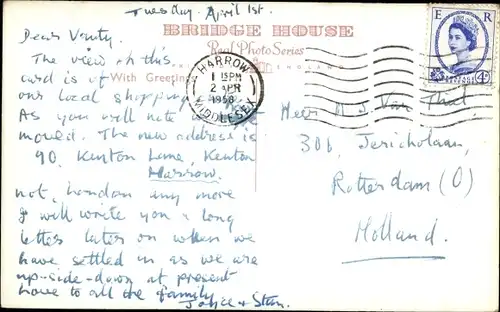 Tuesday. April 1st.
BRIDGE HOUSE
Real Photo Series
With Greetings
ENGLAND
Dear
The view on this
card is of
our local shopping
As you will note
moved. The new address is
90, Kenton Lane, Kenton
Harrow.
not, London any more
I will write you a long
letter later on when we
have settled in as we are
up-side-down at present
Love to all the family
Joyce & Stan.
HARROW
1 15PM
2 APR
1958
MIDDLESEX
E R
POSTAGE
4D
Heer
30b, Jericholaan,
Rotterdam (O)
Holland.